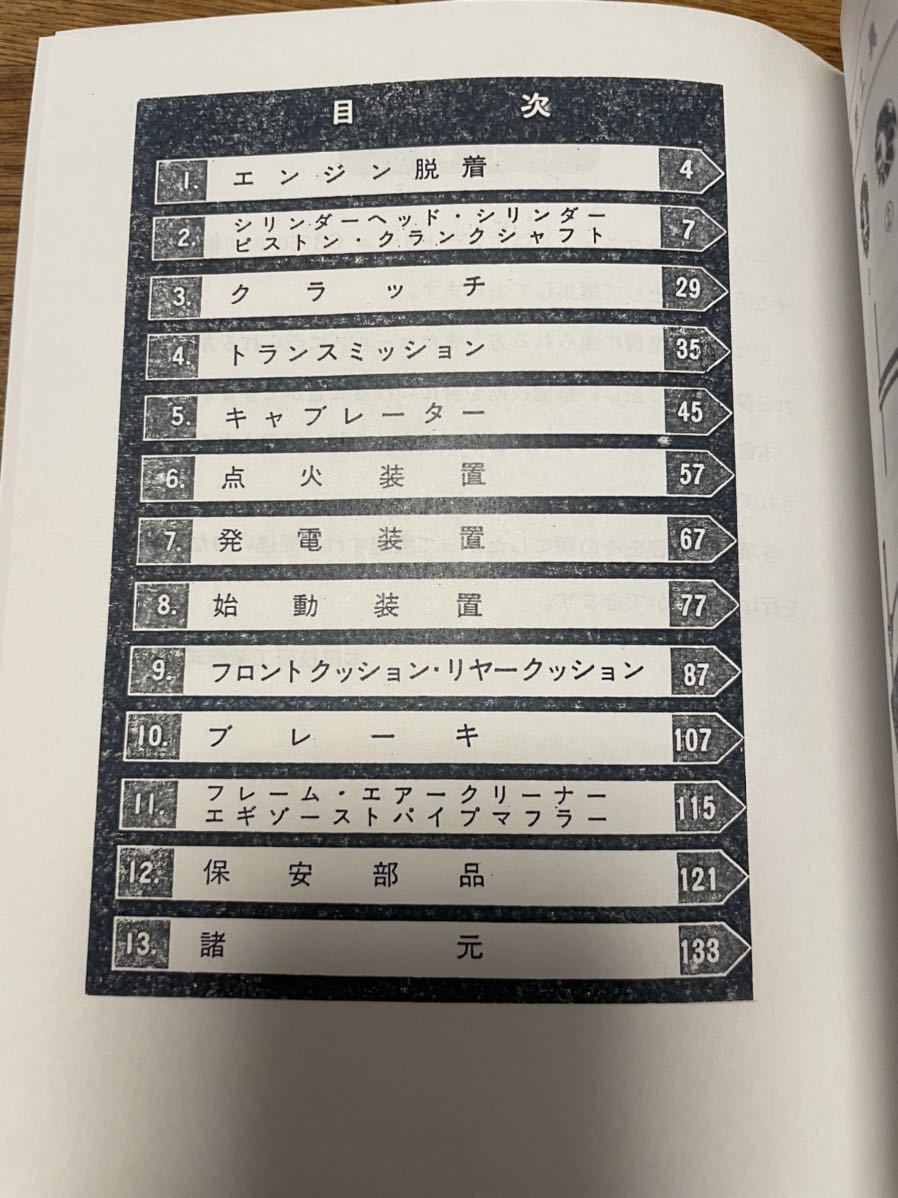 目次
1. エンジン脱着 4
2. シリンダーヘッド・シリンダー
ピストン・クランクシャフト 7
3. クラッチ 29
4. トランスミッション 35
5. キャブレーター 45
6. 点火装置 57
7. 発電装置 67
8. 始動装置 77
9. フロントクッション・リヤークッション 87
10. ブレーキ 107
11. フレーム・エアークリーナー
エギゾーストパイプマフラー 115
12. 保安部品 121
13. 諸元 133